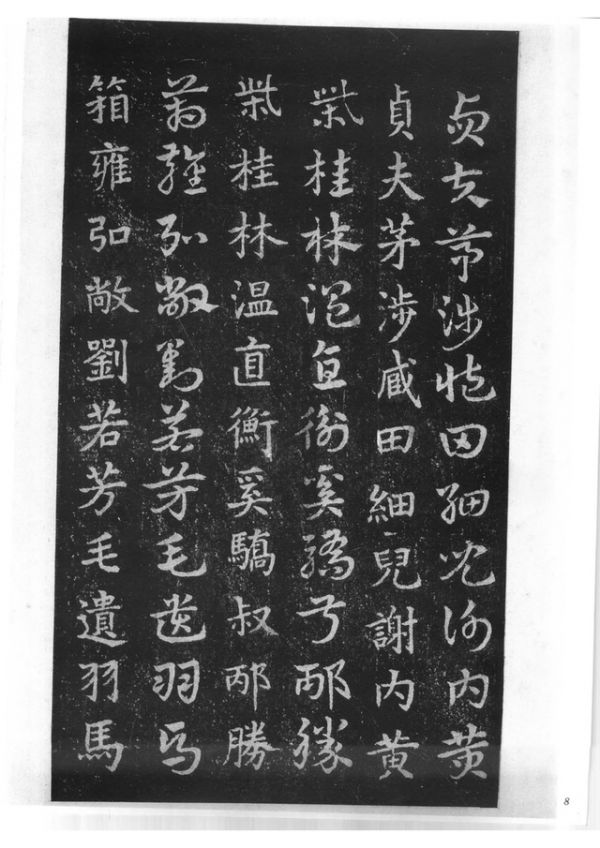 貞夫茅涉臧田細兒謝内黄
貞夫茅涉臧田細兒謝内黄
柴桂林温直衡奚驕叔邴勝
柴桂林温直衡奚驕叔邴勝
箱雍弘敞劉若芳毛遺羽馬
箱雍弘敞劉若芳毛遺羽馬
8